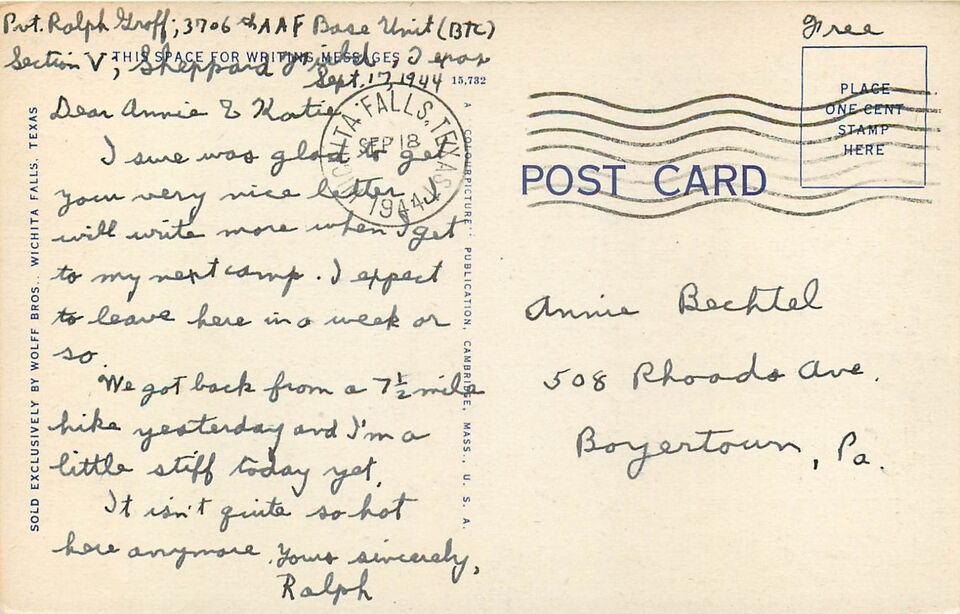 Pvt. Ralph Groff, 3706th AAF Base Unit (BTC)
Section V, Sheppard Field, Texas
THIS SPACE FOR WRITING MESSAGES
Sept. 17, 1944
15,732
Dear Annie & Katie
I sure was glad to get
your very nice letter. I
will write more when I get
to my next camp. I expect
to leave here in a week or
so.
We got back from a 7½ mile
hike yesterday and I'm a
little stiff today yet.
It isn't quite so hot
here anymore. Yours sincerely,
Ralph
SOLD EXCLUSIVELY BY WOLFF BROS., WICHITA FALLS, TEXAS
A "COLOURPICTURE" PUBLICATION, CAMBRIDGE, MASS., U. S. A.
WICHITA FALLS, TEXAS
SEP 18
1944
Free
PLACE
ONE CENT
STAMP
HERE
POST CARD
Annie Bechtel
508 Rhoads Ave.
Boyertown, Pa.